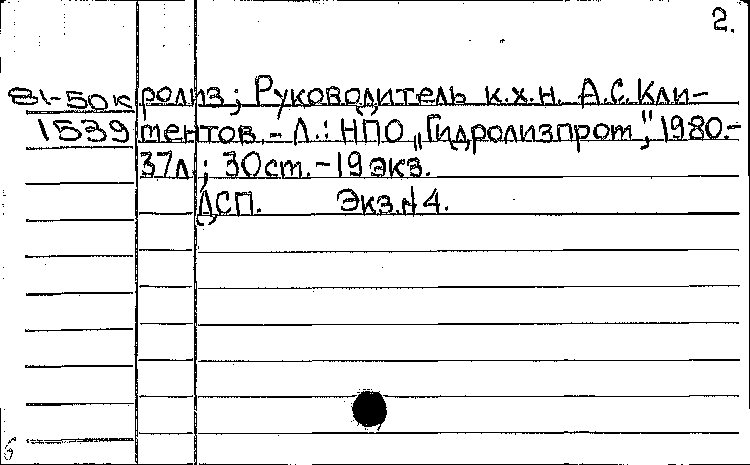 2.
81-50к ролиз; Руководитель к.х.н. А.С.Кли-
1539 ментов. - Л.: НПО „Гидролизпром", 1980.-
37л.; 30ст. - 19 экз.
ДСП. Экз.№4.
6